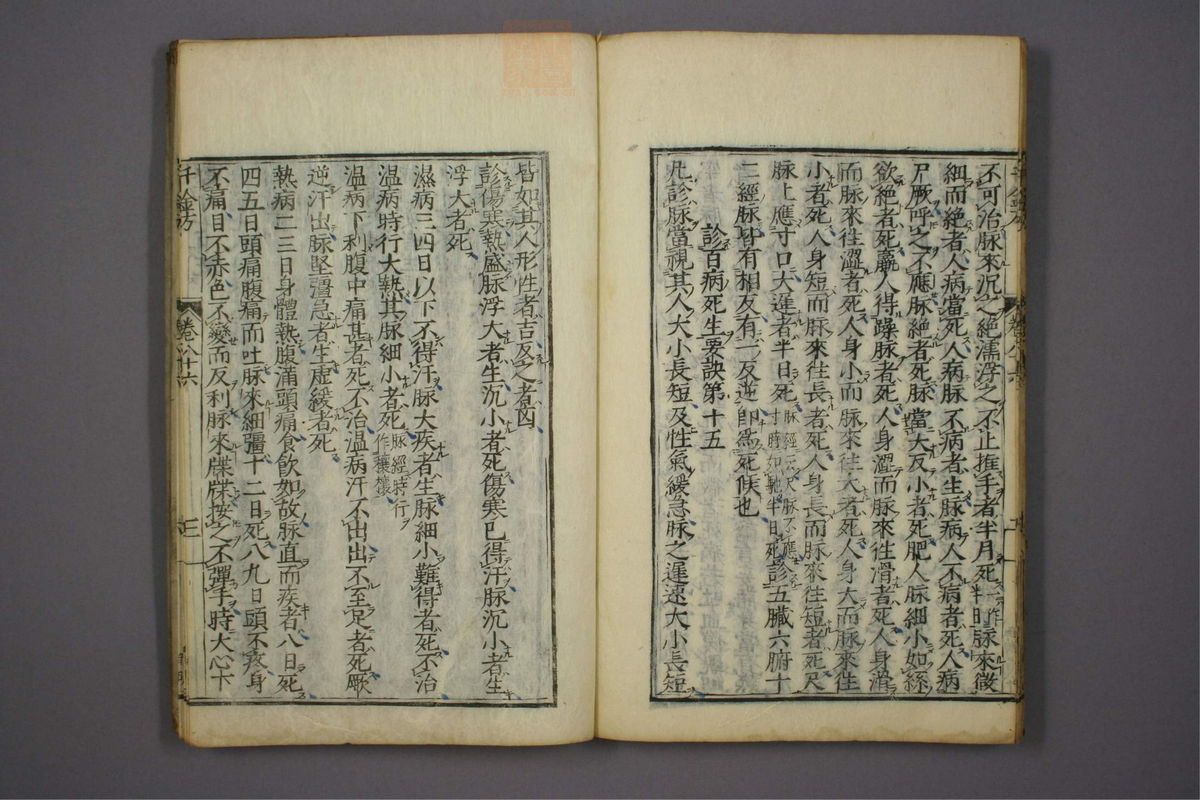 不可治脉來沉之絶濡浮之不止推手者半月死一作半日脉來微
細而絶者人病當死人病脉不病者生脉病人不病者死人病
尸厥呼之不應脉絶者死脉當大反小者死肥人脉細小如絲
欲絶者死羸人得躁脉者死人身澀而脉來往滑者死人身滑
而脉來往澀者死人身小而脉來往大者死人身大而脉來往
小者死人身短而脉來往長者死人身長而脉來往短者死尺
脉上應寸口大遲者半日死脉經云尺脉不應寸時如馳半日死診五臟六腑十
二經脉皆有相反有一反逆即爲死候也
診百病死生要訣第十五
凡診脉當視其人大小長短及性氣緩急脉之遲速大小長短
皆如其人形性者吉反之者凶
診傷寒熱盛脉浮大者生沉小者死傷寒已得汗脉沉小者生
浮大者死
濕病三四日以下不得汗脉大疾者生脉細小難得者死不治
温病時行大熱其脉細小者死脉經時行作穰穰
温病下利腹中痛甚者死不治温病汗不出出不至足者死厥
逆汗出脉堅彊急者生虚緩者死
熱病二三日身體熱腹滿頭痛食飲如故脉直而疾者八日死
四五日頭痛腹痛而吐脉來細彊十二日死八九日頭不疼身
不痛目不赤色不變而反利脉來牒牒按之不彈手時大心下
千金方
卷八十六
三